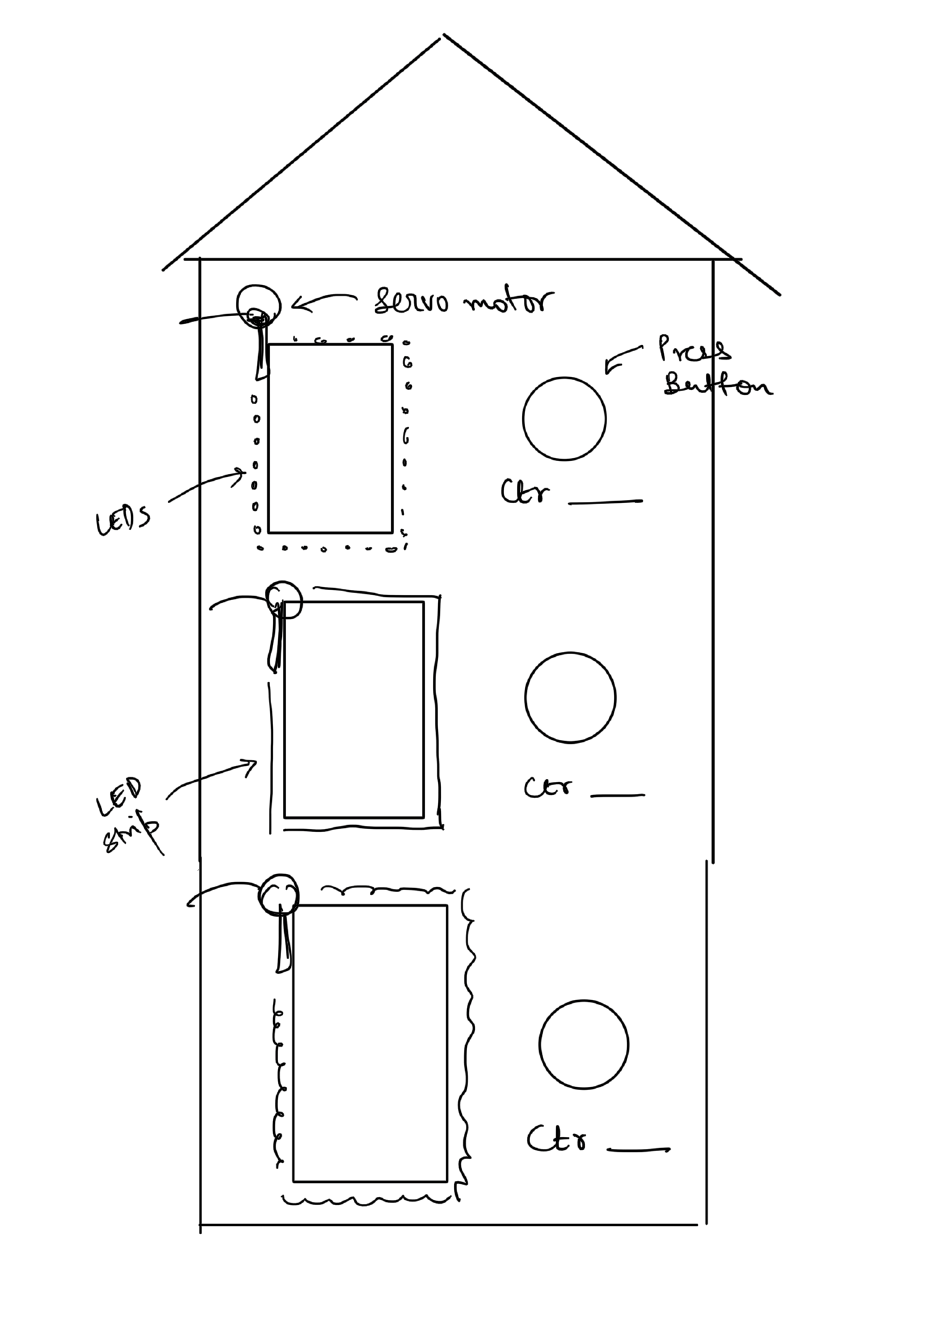 Servo motor
Press
Button
Ctr ____
LEDs
Ctr ____
LED
strip
Ctr ____